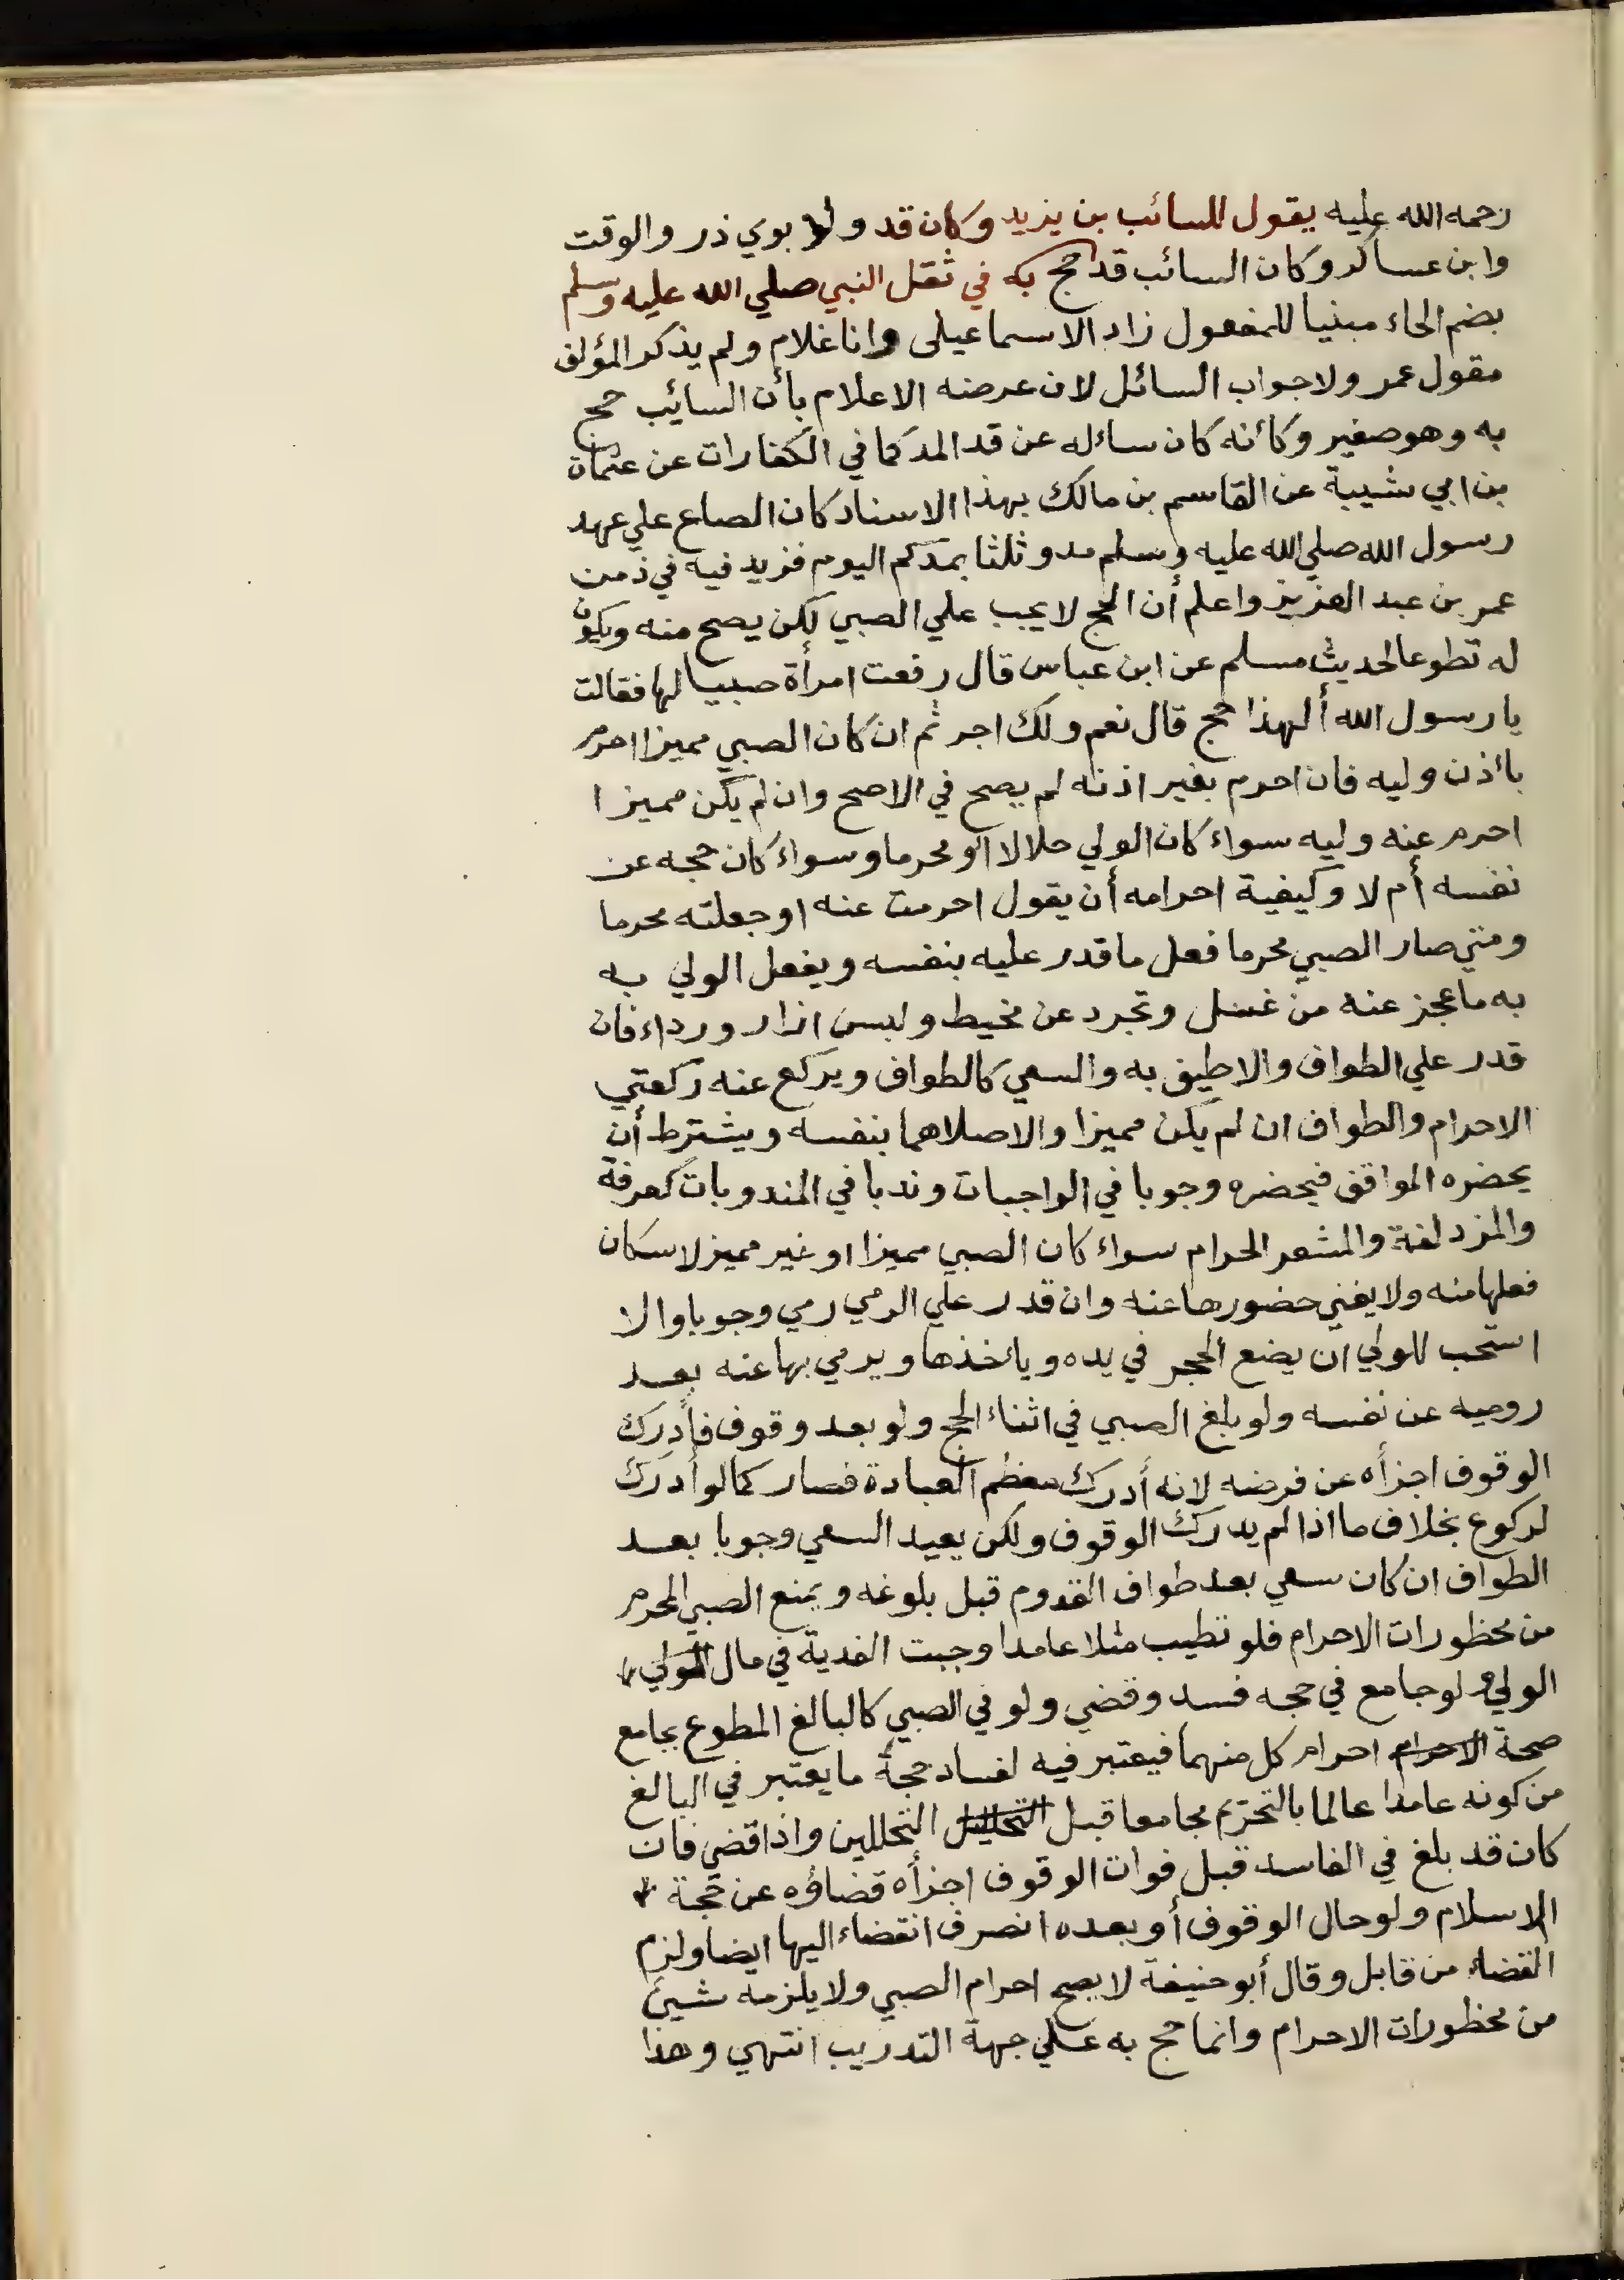 رحمه الله عليه يقول للسائب بن يزيد وكان قد ولا بوي ذر والوقت
وابن عساكر وكان السائب قد حج به في ثقل النبي صلي الله عليه وسلم
بضم الحاء مبنيا للمفعول زاد الاسماعيلى وانا غلام ولم يذكر المؤلف
مقول عمر ولا جواب السائل لان عرضه الاعلام بأن السايب حج
به وهو صغير وكأنه كان سأله عن قد المد كما في الكفارات عن عثمان
بن ابي شيبة عن القاسم بن مالك بهذا الاسناد كان الصاع علي عهد
رسول الله صلي الله عليه وسلم مد وثلثا بمدكم اليوم فزيد فيه في زمن
عمر بن عبد العزيز واعلم أن الحج لا يجب علي الصبي لكن يصح منه ويكون
له تطوعا لحديث مسلم عن ابن عباس قال رفعت امرأة صبيا لها فقالت
يا رسول الله ألهذا حج قال نعم ولك اجر ثم ان كان الصبي مميزا احرم
بأذن وليه فان احرم بغير اذنه لم يصح في الاصح وان لم يكن مميزا
احرم عنه وليه سواء كان الولي حلالا او محرما وسواء كان حجه عن
نفسه أم لا وكيفية احرامه أن يقول احرمت عنه او جعلته محرما
ومتي صار الصبي محرما فعل ما قدر عليه بنفسه ويفعل الولي به
به ما عجز عنه من غسل وتجرد عن مخيط ولبس ازار ورداء فان
قدر علي الطواف والا طيف به والسعي كالطواف ويركع عنه ركعتي
الاحرام والطواف ان لم يكن مميزا والا صلاهما بنفسه ويشترط أن
يحضره المواقف فيحضره وجوبا في الواجبات وندبا في المندوبات كعرفة
والمزدلفة والمشعر الحرام سواء كان الصبي مميزا او غير مميز لاسكان
فعلها منه ولا يغني حضورها عنه وان قدر علي الرمي رمي وجوبا والا
استحب للولي ان يضع الحجر في يده ويأخذها ويرمي بها عنه بعد
روميه عن نفسه ولو بلغ الصبي في اثناء الحج ولو بعد وقوف فأدرك
الوقوف اجزأه عن فرضه لانه أدرك معظم العبادة فصار كما لو أدرك
لركوع بخلاف ما اذا لم يدرك الوقوف ولكن يعيد السعي وجوبا بعد
الطواف ان كان سعي بعد طواف القدوم قبل بلوغه ويمنع الصبي المحرم
من محظورات الاحرام فلو تطيب مثلا عامدا وجبت الفدية في مال الولي
الولي ولو جامع في حجه فسد وقضي ولو في الصبي كالبالغ المطوع بجامع
صحة الاحرام احرام كل منهما فيعتبر فيه لفساد حجة ما يعتبر في البالغ
من كونه عامدا عالما بالتحريم مجامعا قبل التحليل التحللين واذا قضي فان
كان قد بلغ في الفاسد قبل فوات الوقوف اجزأه قضاؤه عن حجة
الاسلام ولو حال الوقوف أو بعده انصرف انقضاء اليها ايضا ولزم
القضاء من قابل وقال أبو حنيفة لا يصح احرام الصبي ولا يلزمه شيئ
من محظورات الاحرام وانما حج به علي جهة التدريب انتهي وهذا